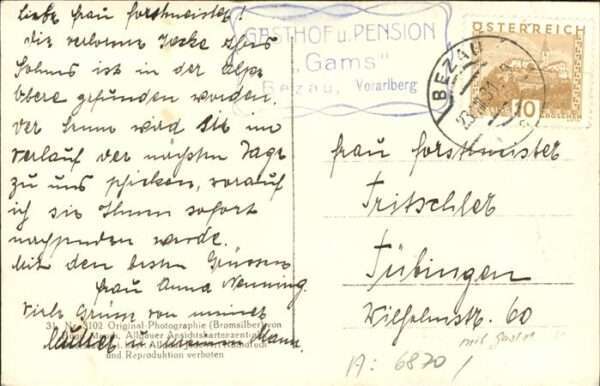 Liebe Frau Forstmeister!
Die verlorene Jacke Ihres
Sohnes ist in der Alpe
Obere gefunden worden.
Der Senne wird sie im
Verlauf der nächsten Tage
zu uns schicken, worauf
ich sie Ihnen sofort
nachsenden werde.
Mit den besten Grüssen
Frau Anna
Viele Grüsse von meiner
Mutter u. meinem Mann.
102 Original-Photographie (Bromsilber) von
Allgäuer Ansichtskartenzentrale
und Reproduktion verboten
GASTHOF u. PENSION
„Gams"
Bezau, Vorarlberg
BEZAU
ÖSTERREICH
10
GROSCHEN
Frau Forstmeister
Fritschler
Tübingen
Wilhelmstr. 60
A: 6870/